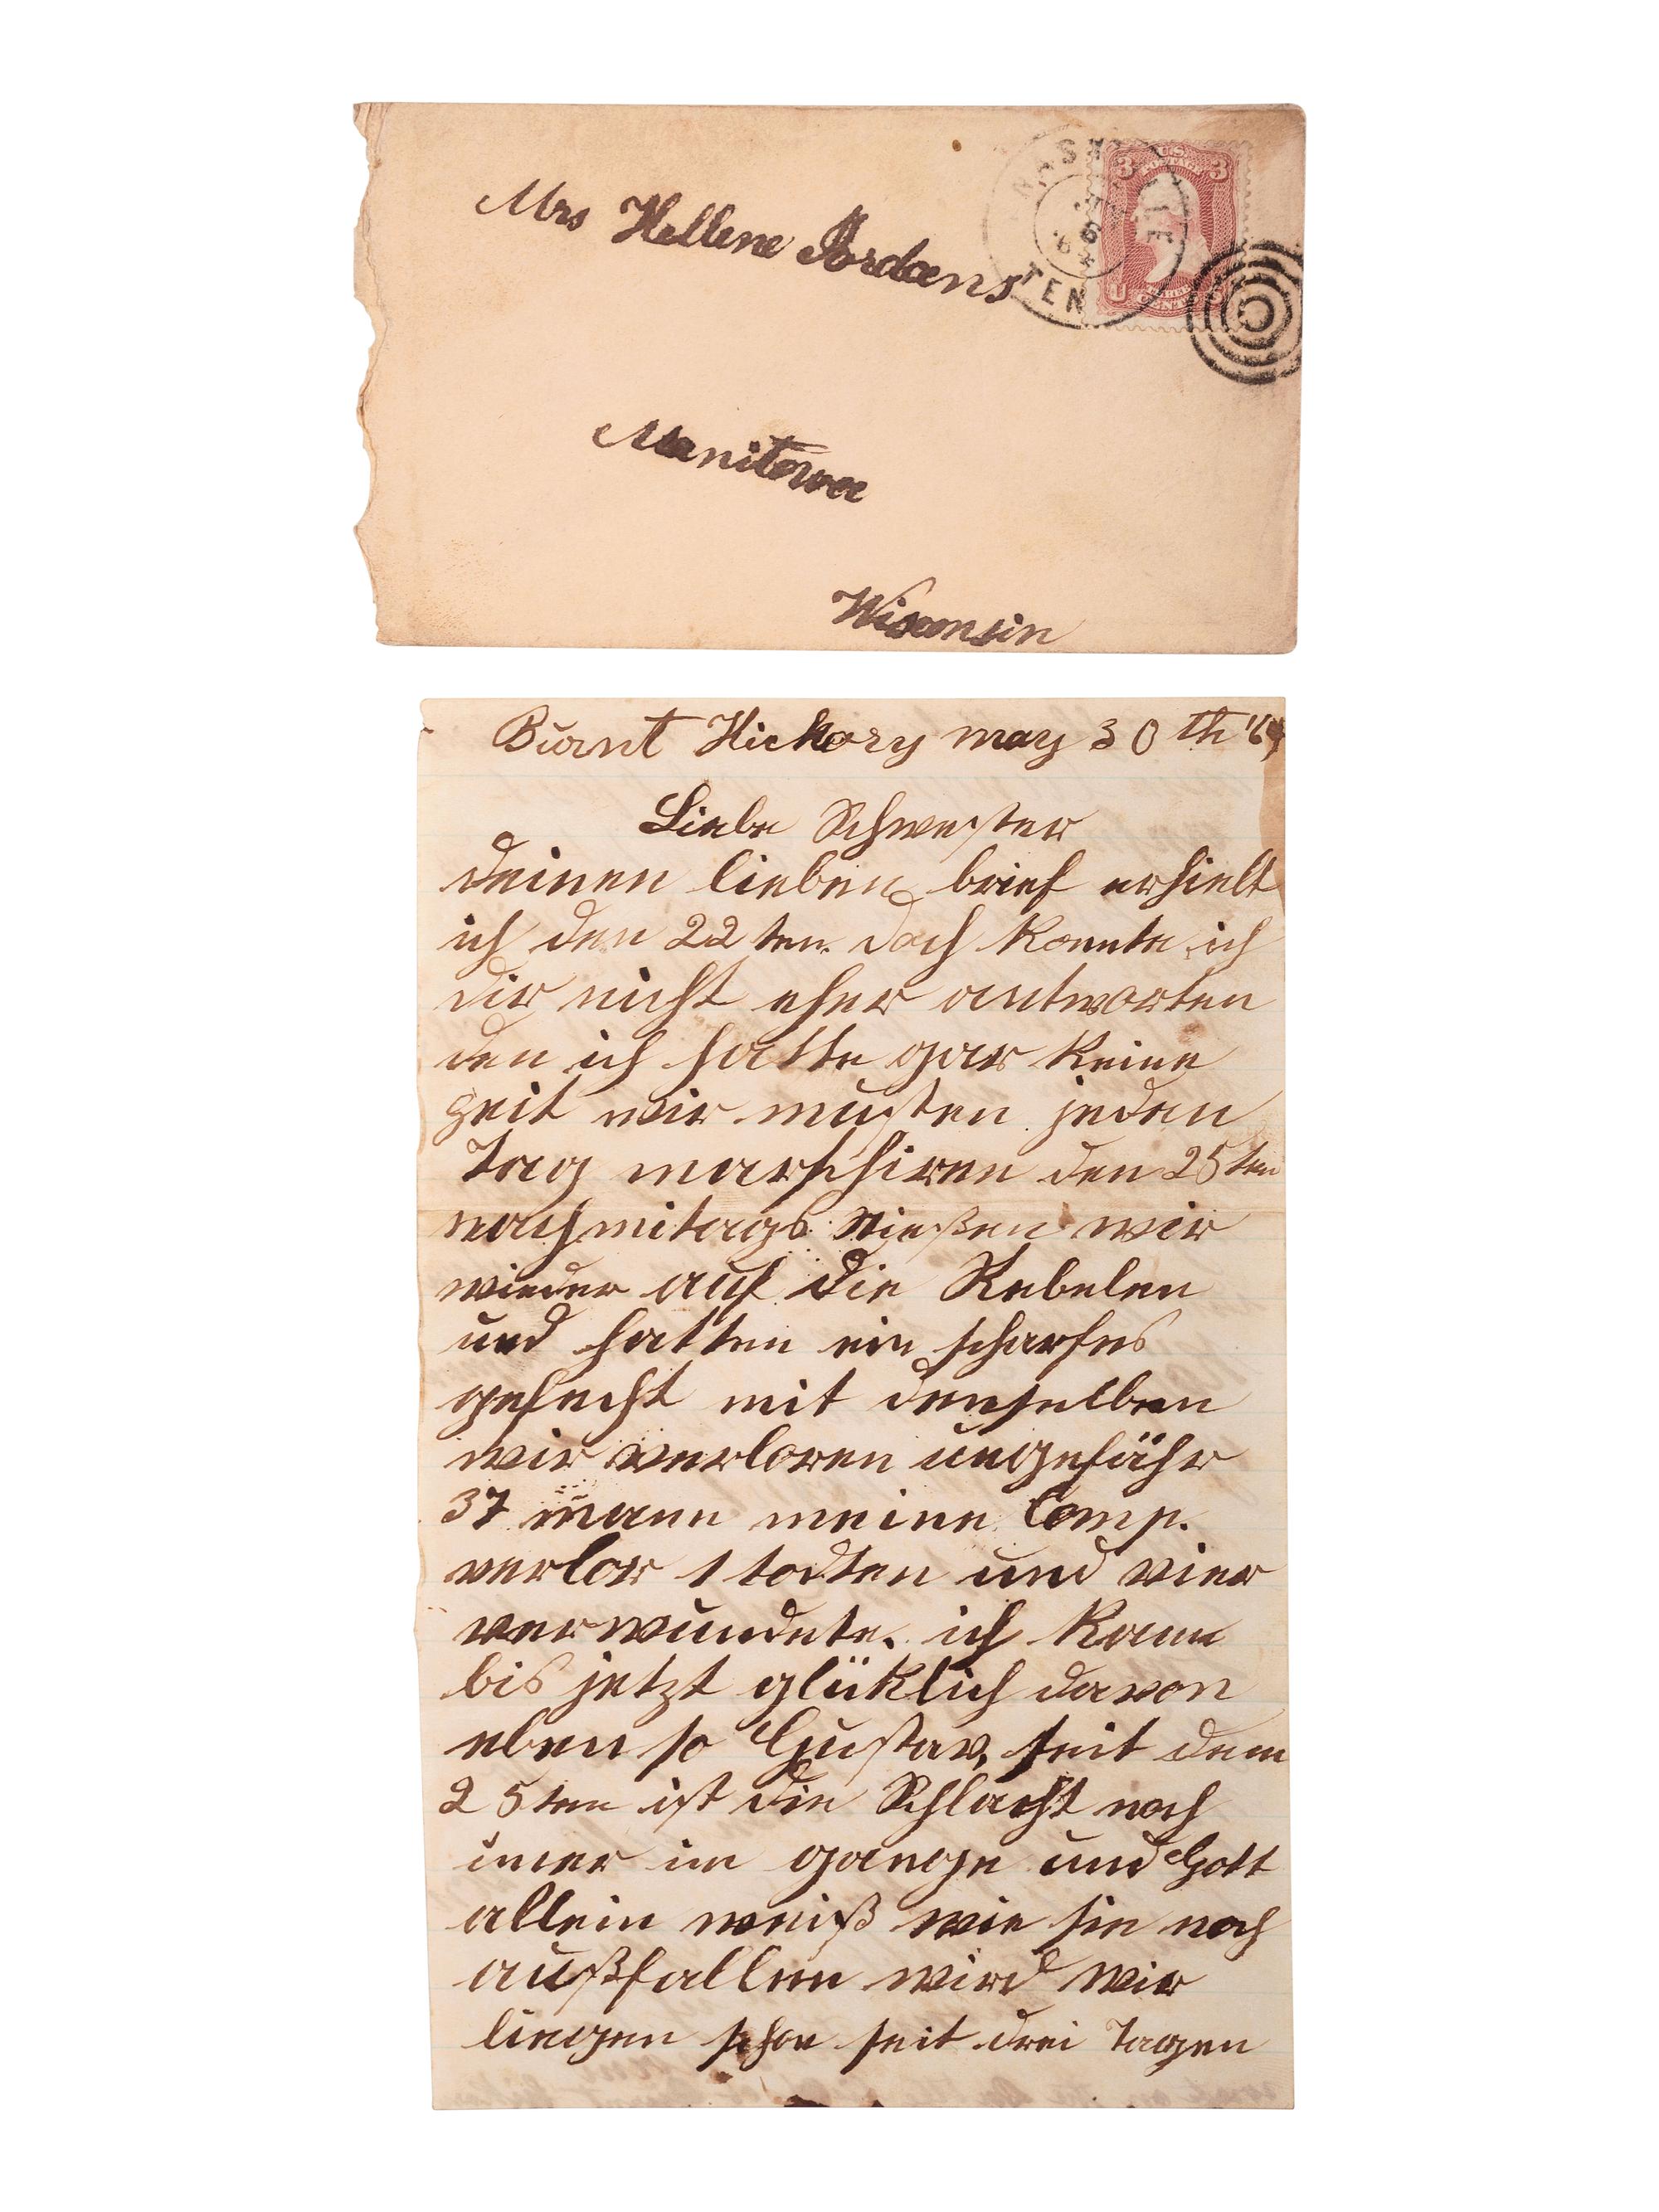 Mrs Hellene Jordans
NASHVILLE
TEN
6
U.S.
POSTAGE
3 3
U
CENTS
Manitowoc
Wisconsin
Burnt Hickory may 30th '64
Liebe Schwester
deinen lieben brief erhielt
ich den 22ten. doch konnte ich
dir nicht eher antworten
den ich hatte gar keine
zeit wir musten jeden
Tag marschiren den 25ten
nachmitags stießen wir
wieder auf die Rebelen
und hatten ein scharfes
gefecht mit denselben
wir verloren ungefähr
37 mann meine Comp.
verlor 1 todten und vier
verwundete. ich kam
bis jetzt glüklich davon
eben so Gustav, seit dem
25ten ist die Schlacht noch
imer im gange und Gott
allein weiß wie sie noch
außfallen wird wir
liegen schon seit drei Tagen